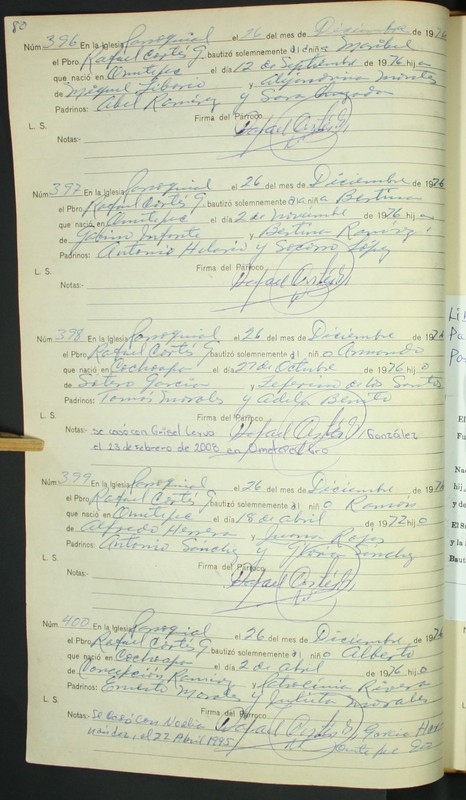 80
Núm. 396 En la Iglesia Parroquial el 26 del mes de Diciembre de 1976
el Pbro. Rafael Cortés G. bautizó solemnemente a niña Maribel
que nació en Omitepec el día 12 de Septiembre de 1976 hija
de Miguel Liborio y Alejandrina Morales
Padrinos: Abel Ramírez y Sara
Firma del Párroco
L. S.
Rafael Cortés G.
Notas:-
Núm. 397 En la Iglesia Parroquial el 26 del mes de Diciembre de 1976
el Pbro. Rafael Cortés G. bautizó solemnemente a la niña Bertina
que nació en Omitepec el día 2 de noviembre de 1976 hija
de Infante y Bertina Ramírez
Padrinos: Antonio Hilario y Socorro López
Firma del Párroco
L. S.
Rafael Cortés G.
Notas:-
Núm. 398 En la Iglesia Parroquial el 26 del mes de Diciembre de 1976
el Pbro. Rafael Cortés G. bautizó solemnemente al niño Armando
que nació en Cochoapa el día 27 de Octubre de 1976 hijo
de Sotero García y Zeferina de los Santos
Padrinos: Tomás Morales y Adela Benito
Firma del Párroco
L. S.
Rafael Cortés G.
Notas:- se casó con Grisel González
el 23 de febrero de 2008 en
Núm. 399 En la Iglesia Parroquial el 26 del mes de Diciembre de 1976
el Pbro. Rafael Cortés G. bautizó solemnemente al niño Ramón
que nació en Omitepec el día 18 de abril de 1972 hijo
de Alfredo Herrera y Juana Rojas
Padrinos: Antonio Sánchez y Sánchez
Firma del Párroco
L. S.
Rafael Cortés G.
Notas:-
Núm. 400 En la Iglesia Parroquial el 26 del mes de Diciembre de 1976
el Pbro. Rafael Cortés G. bautizó solemnemente al niño Alberto
que nació en Cochoapa el día 2 de abril de 1976 hijo
de Concepción Ramírez y Petrolinia Rivera
Padrinos: Ernesto Morales y Julieta Morales
Firma del Párroco
L. S.
Rafael Cortés G.
Notas:- Se casó con Noelia García
el 22 Abril 1995